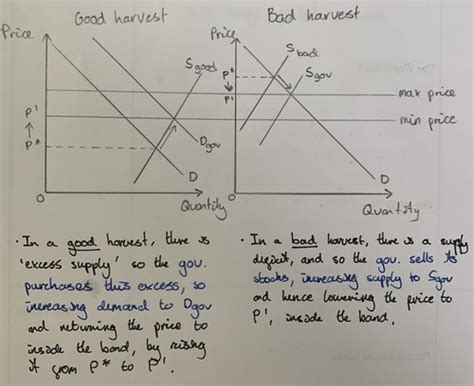 Good harvest
Bad harvest
Price
Sgood
P'
P*
Dgov
D
O
Quantity
Price
Sbad
Sgov
P*
P'
max price
min price
D
O
Quantity
· In a good harvest, there is
'excess supply' so the gov.
purchases this excess, so
increasing demand to Dgov
and returning the price to
inside the band, by raising
it from P* to P'.
· In a bad harvest, there is a supply
deficit, and so the gov. sells its
stocks, increasing supply to Sgov
and hence lowering the price to
P', inside the band.